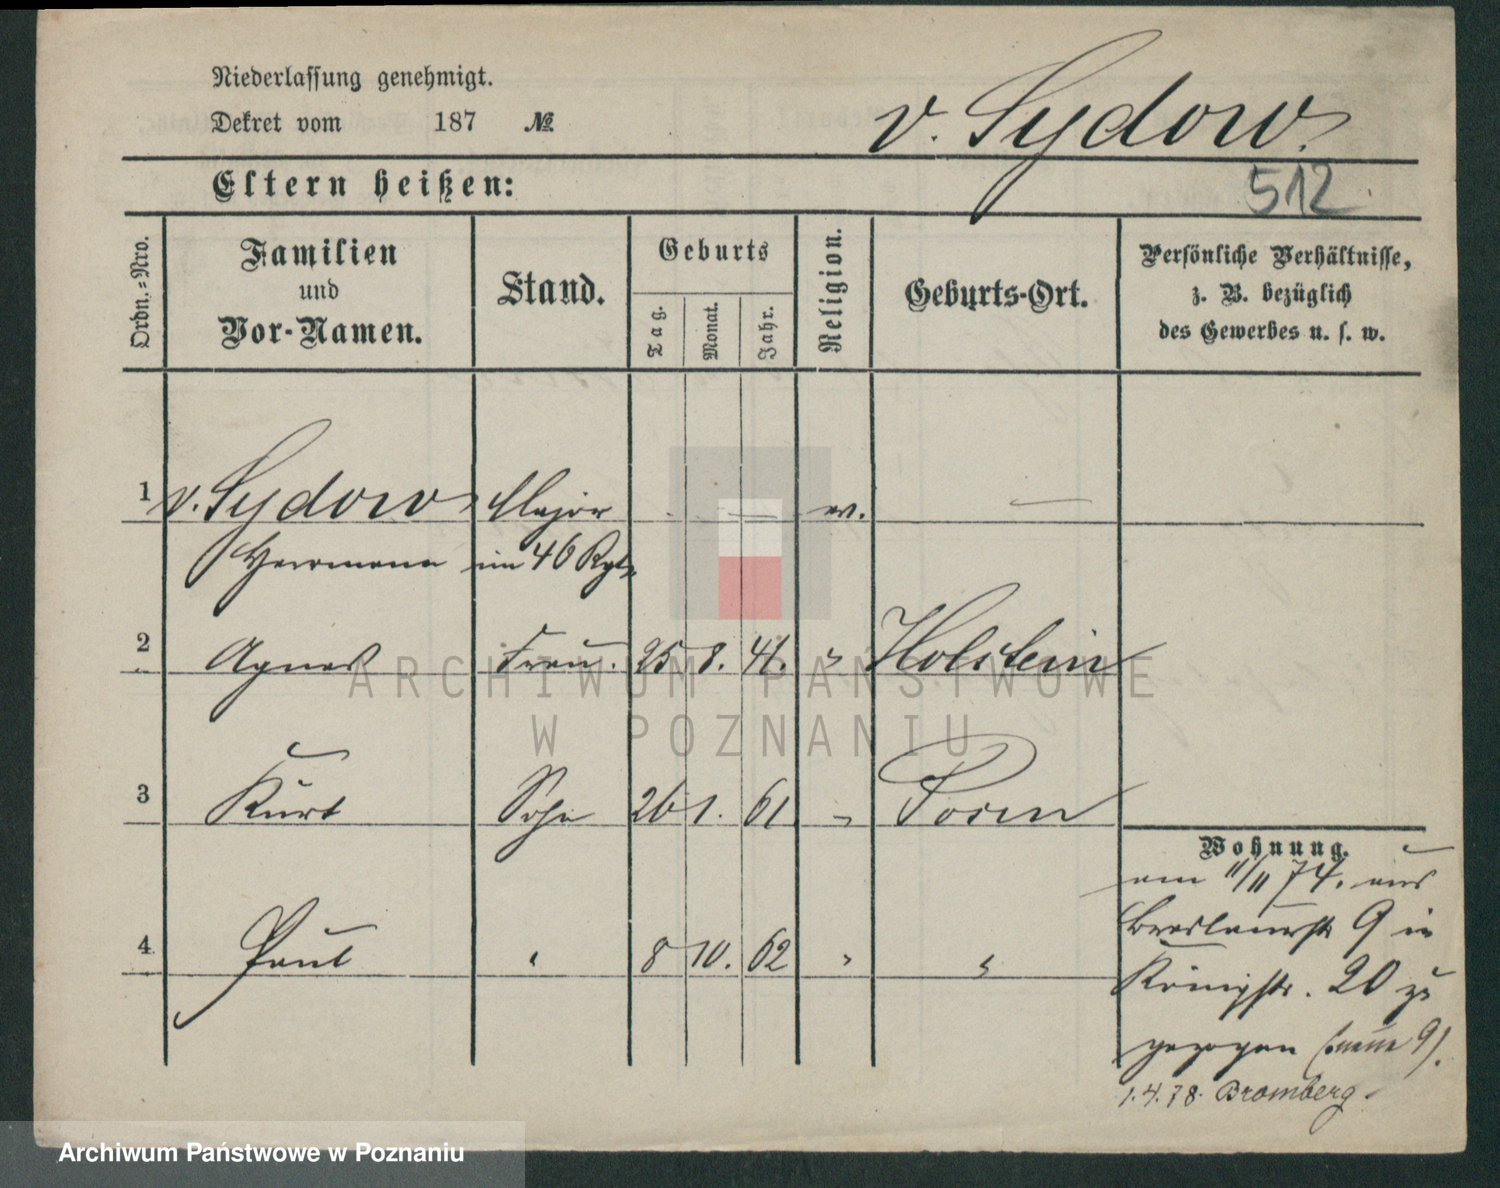 Niederlassung genehmigt.
Dekret vom 187 №
v. Sydow.
Eltern heißen:
512
Ordn.-Nro.
Familien
und
Vor-Namen.
Stand.
Geburts
Tag.
Monat.
Jahr.
Religion.
Geburts-Ort.
Persönliche Verhältnisse,
z. B. bezüglich
des Gewerbes u. s. w.
1 v. Sydow Major ev. —
Herrmann im 46 Rgt.
2 Agnes Frau. 25 8. 41. " Holstein
3 Kurt Sohn 26 1. 61 " Posen
4 Paul " 8 10. 62 " "
Wohnung.
am 11/11 74. aus
Breslauerstr 9 in
Königstr. 20 zu
gezogen (neue 9).
1.4.78. Bromberg.
ARCHIWUM PAŃSTWOWE
W POZNANIU
Archiwum Państwowe w Poznaniu